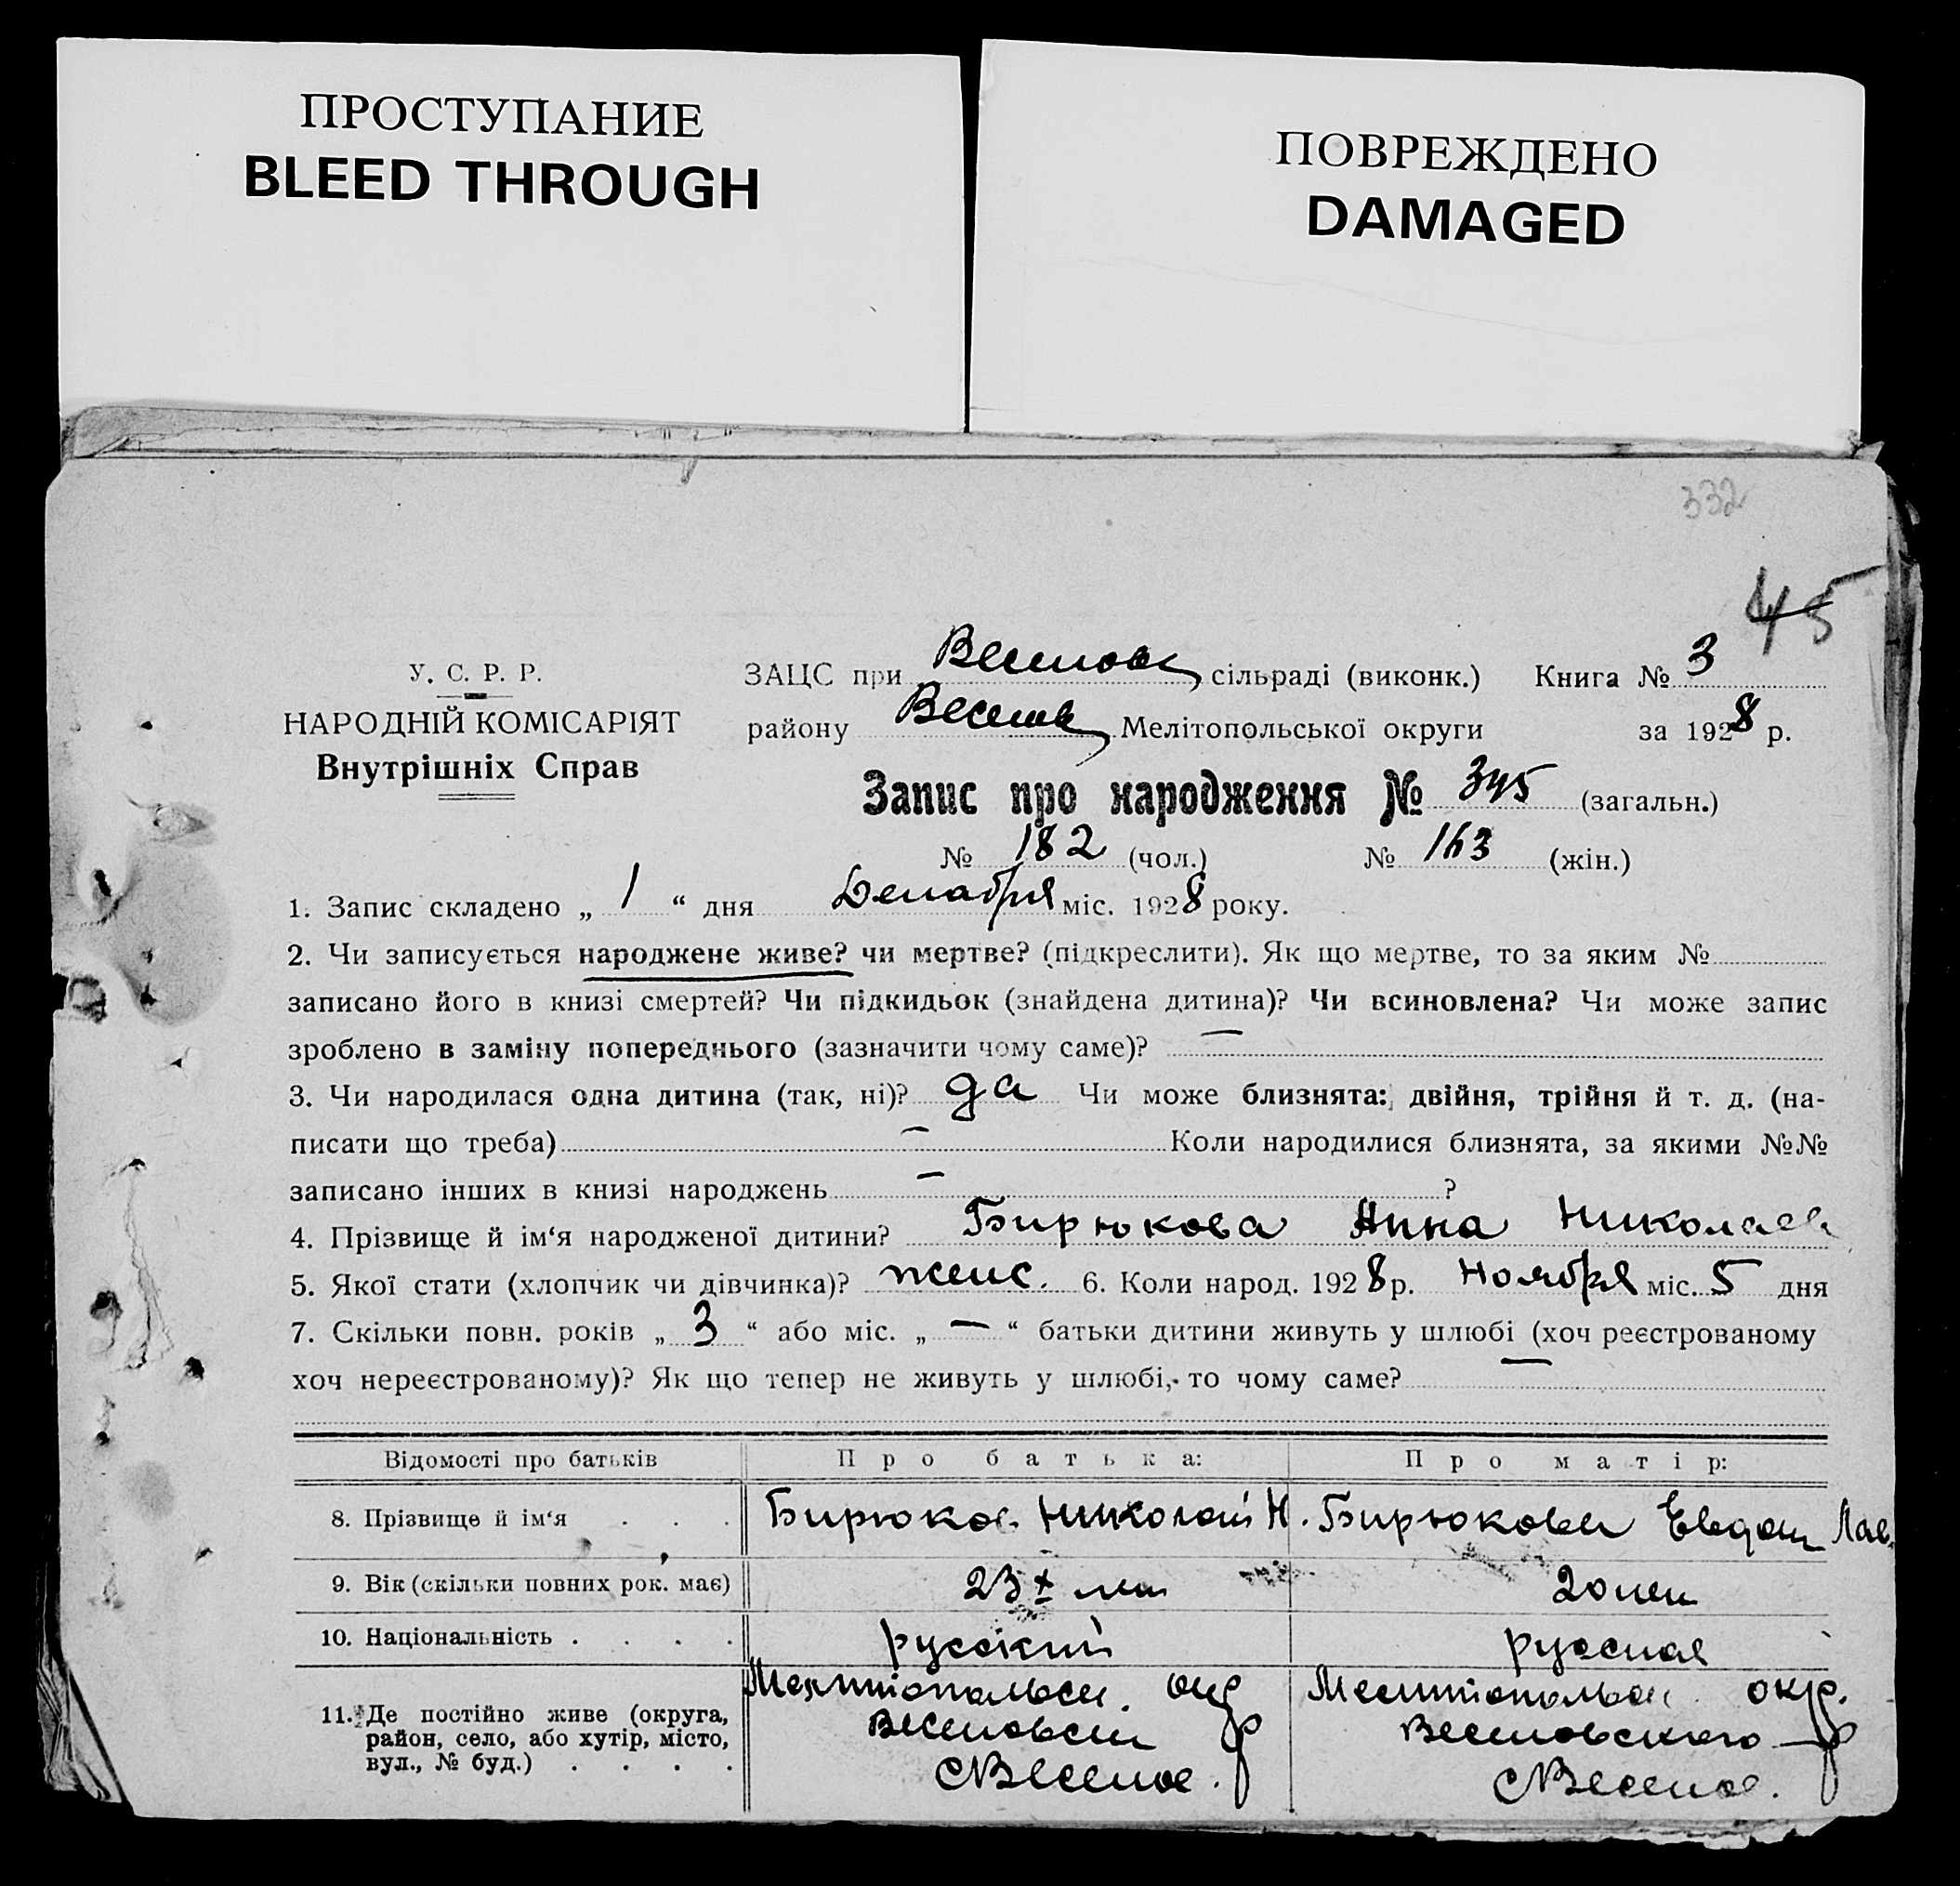 ПРОСТУПАНИЕ
BLEED THROUGH
ПОВРЕЖДЕНО
DAMAGED
332
45
У. С. Р. Р.
НАРОДНІЙ КОМІСАРІЯТ
Внутрішніх Справ
ЗАЦС при Веселов сільраді (виконк.) Книга № 3
району Веселов Мелітопольської округи за 1928 р.
Запис про народження № 345 (загальн.)
№ 182 (чол.) № 163 (жін.)
1. Запис складено „ 1 “ дня Декабря міс. 1928 року.
2. Чи записується народжене живе? чи мертве? (підкреслити). Як що мертве, то за яким №
записано його в книзі смертей? Чи підкидьок (знайдена дитина)? Чи всиновлена? Чи може запис
зроблено в заміну попереднього (зазначити чому саме)? —
3. Чи народилася одна дитина (так, ні)? да Чи може близнята: двійня, трійня й т. д. (на-
писати що треба) — Коли народилися близнята, за якими №№
записано інших в книзі народжень — ?
4. Прізвище й ім‘я народженої дитини? Бирюкова Анна Николаев
5. Якої стати (хлопчик чи дівчинка)? женс. 6. Коли народ. 1928 р. Ноября міс. 5 дня
7. Скільки повн. років „ 3 “ або міс. „ — “ батьки дитини живуть у шлюбі (хоч реєстрованому
хоч нереєстрованому)? Як що тепер не живуть у шлюбі, то чому саме? —
Відомості про батьків Про батька: Про матір:
8. Прізвище й ім‘я . . . Бирюков Николай Н. Бирюкова Евдок Лав.
9. Вік (скільки повних рок. має) 23 лет 20 лет
10. Національність . . . . русский русская
11. Де постійно живе (округа,
район, село, або хутір, місто,
вул., № буд.) . . . .
Мелитопольск. окр
Веселовск р
с Веселое.
Мелитопольск окр.
Веселовского р
с Веселое.